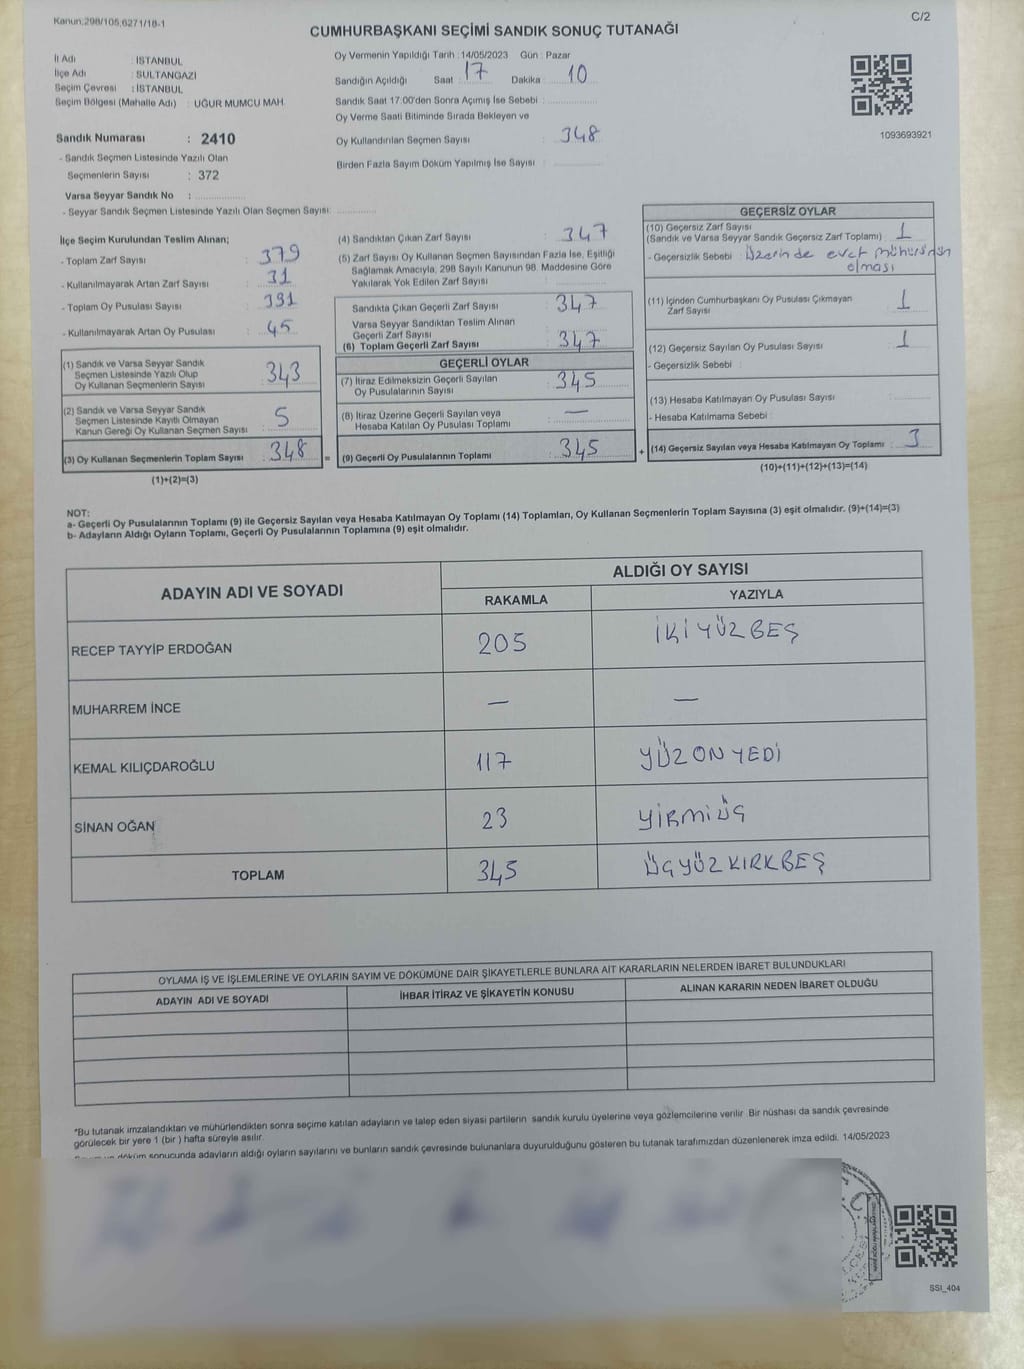 Kanun:298/105,6271/18-1
C/2
CUMHURBAŞKANI SEÇİMİ SANDIK SONUÇ TUTANAĞI
İl Adı : İSTANBUL
İlçe Adı : SULTANGAZİ
Seçim Çevresi : İSTANBUL
Seçim Bölgesi (Mahalle Adı) : UĞUR MUMCU MAH.
Oy Vermenin Yapıldığı Tarih : 14/05/2023 Gün : Pazar
Sandığın Açıldığı Saat : 17 Dakika : 10
Sandık Saat 17:00'den Sonra Açılmış İse Sebebi :
Oy Verme Saati Bitiminde Sırada Bekleyen ve
Oy Kullandırılan Seçmen Sayısı : 348
Birden Fazla Sayım Döküm Yapılmış İse Sayısı :
1093693921
Sandık Numarası : 2410
- Sandık Seçmen Listesinde Yazılı Olan
Seçmenlerin Sayısı : 372
Varsa Seyyar Sandık No :
- Seyyar Sandık Seçmen Listesinde Yazılı Olan Seçmen Sayısı:
İlçe Seçim Kurulundan Teslim Alınan;
- Toplam Zarf Sayısı : 379
- Kullanılmayarak Artan Zarf Sayısı : 31
- Toplam Oy Pusulası Sayısı : 391
- Kullanılmayarak Artan Oy Pusulası : 45
(1) Sandık ve Varsa Seyyar Sandık
Seçmen Listesinde Yazılı Olup
Oy Kullanan Seçmenlerin Sayısı : 343
(2) Sandık ve Varsa Seyyar Sandık
Seçmen Listesinde Kayıtlı Olmayan
Kanun Gereği Oy Kullanan Seçmen Sayısı : 5
(3) Oy Kullanan Seçmenlerin Toplam Sayısı : 348
(1)+(2)=(3)
(4) Sandıktan Çıkan Zarf Sayısı : 347
(5) Zarf Sayısı Oy Kullanan Seçmen Sayısından Fazla İse, Eşitliği
Sağlamak Amacıyla, 298 Sayılı Kanunun 98. Maddesine Göre
Yakılarak Yok Edilen Zarf Sayısı :
Sandıkta Çıkan Geçerli Zarf Sayısı : 347
Varsa Seyyar Sandıktan Teslim Alınan
Geçerli Zarf Sayısı
(6) Toplam Geçerli Zarf Sayısı : 347
GEÇERLİ OYLAR
(7) İtiraz Edilmeksizin Geçerli Sayılan
Oy Pusulalarının Sayısı : 345
(8) İtiraz Üzerine Geçerli Sayılan veya
Hesaba Katılan Oy Pusulası Toplamı : —
= (9) Geçerli Oy Pusulalarının Toplamı : 345
GEÇERSİZ OYLAR
(10) Geçersiz Zarf Sayısı
(Sandık ve Varsa Seyyar Sandık Geçersiz Zarf Toplamı) : 1
- Geçersizlik Sebebi : üzerinde evet mührünün
olması
(11) İçinden Cumhurbaşkanı Oy Pusulası Çıkmayan
Zarf Sayısı : 1
(12) Geçersiz Sayılan Oy Pusulası Sayısı : 1
- Geçersizlik Sebebi :
(13) Hesaba Katılmayan Oy Pusulası Sayısı :
- Hesaba Katılmama Sebebi :
+ (14) Geçersiz Sayılan veya Hesaba Katılmayan Oy Toplamı : 3
(10)+(11)+(12)+(13)=(14)
NOT:
a- Geçerli Oy Pusulalarının Toplamı (9) ile Geçersiz Sayılan veya Hesaba Katılmayan Oy Toplamı (14) Toplamları, Oy Kullanan Seçmenlerin Toplam Sayısına (3) eşit olmalıdır. (9)+(14)=(3)
b- Adayların Aldığı Oyların Toplamı, Geçerli Oy Pusulalarının Toplamına (9) eşit olmalıdır.
ADAYIN ADI VE SOYADI
ALDIĞI OY SAYISI
RAKAMLA YAZIYLA
RECEP TAYYİP ERDOĞAN 205 İKİYÜZBEŞ
MUHARREM İNCE — —
KEMAL KILIÇDAROĞLU 117 YÜZONYEDİ
SİNAN OĞAN 23 YİRMİÜÇ
TOPLAM 345 ÜÇYÜZKIRKBEŞ
OYLAMA İŞ VE İŞLEMLERİNE VE OYLARIN SAYIM VE DÖKÜMÜNE DAİR ŞİKAYETLERLE BUNLARA AİT KARARLARIN NELERDEN İBARET BULUNDUKLARI
ADAYIN ADI VE SOYADI İHBAR İTİRAZ VE ŞİKAYETİN KONUSU ALINAN KARARIN NEDEN İBARET OLDUĞU
*Bu tutanak imzalandıktan ve mühürlendikten sonra seçime katılan adayların ve talep eden siyasi partilerin sandık kurulu üyelerine veya gözlemcilerine verilir. Bir nüshası da sandık çevresinde
görülecek bir yere 1 (bir) hafta süreyle asılır.
döküm sonucunda adayların aldığı oyların sayılarını ve bunların sandık çevresinde bulunanlara duyurulduğunu gösteren bu tutanak tarafımızdan düzenlenerek imza edildi. 14/05/2023
SSI_404